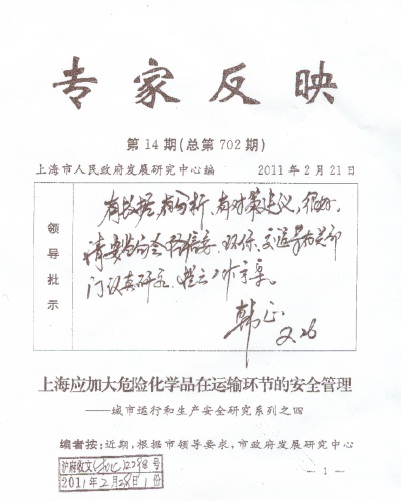 专家反映
第14期(总第702期)
上海市人民政府发展研究中心编 2011年2月21日
领导批示
有数据,有分析,有对策建议,很好。
请安监局会 经信委、环保、交运等有关部
门认真研究,提出工作方案。
韩正
2.26
上海应加大危险化学品在运输环节的安全管理
——城市运行和生产安全研究系列之四
编者按:近期,根据市领导要求,市政府发展研究中心
沪府收文 号
2011年2月28日1份
— 1 —